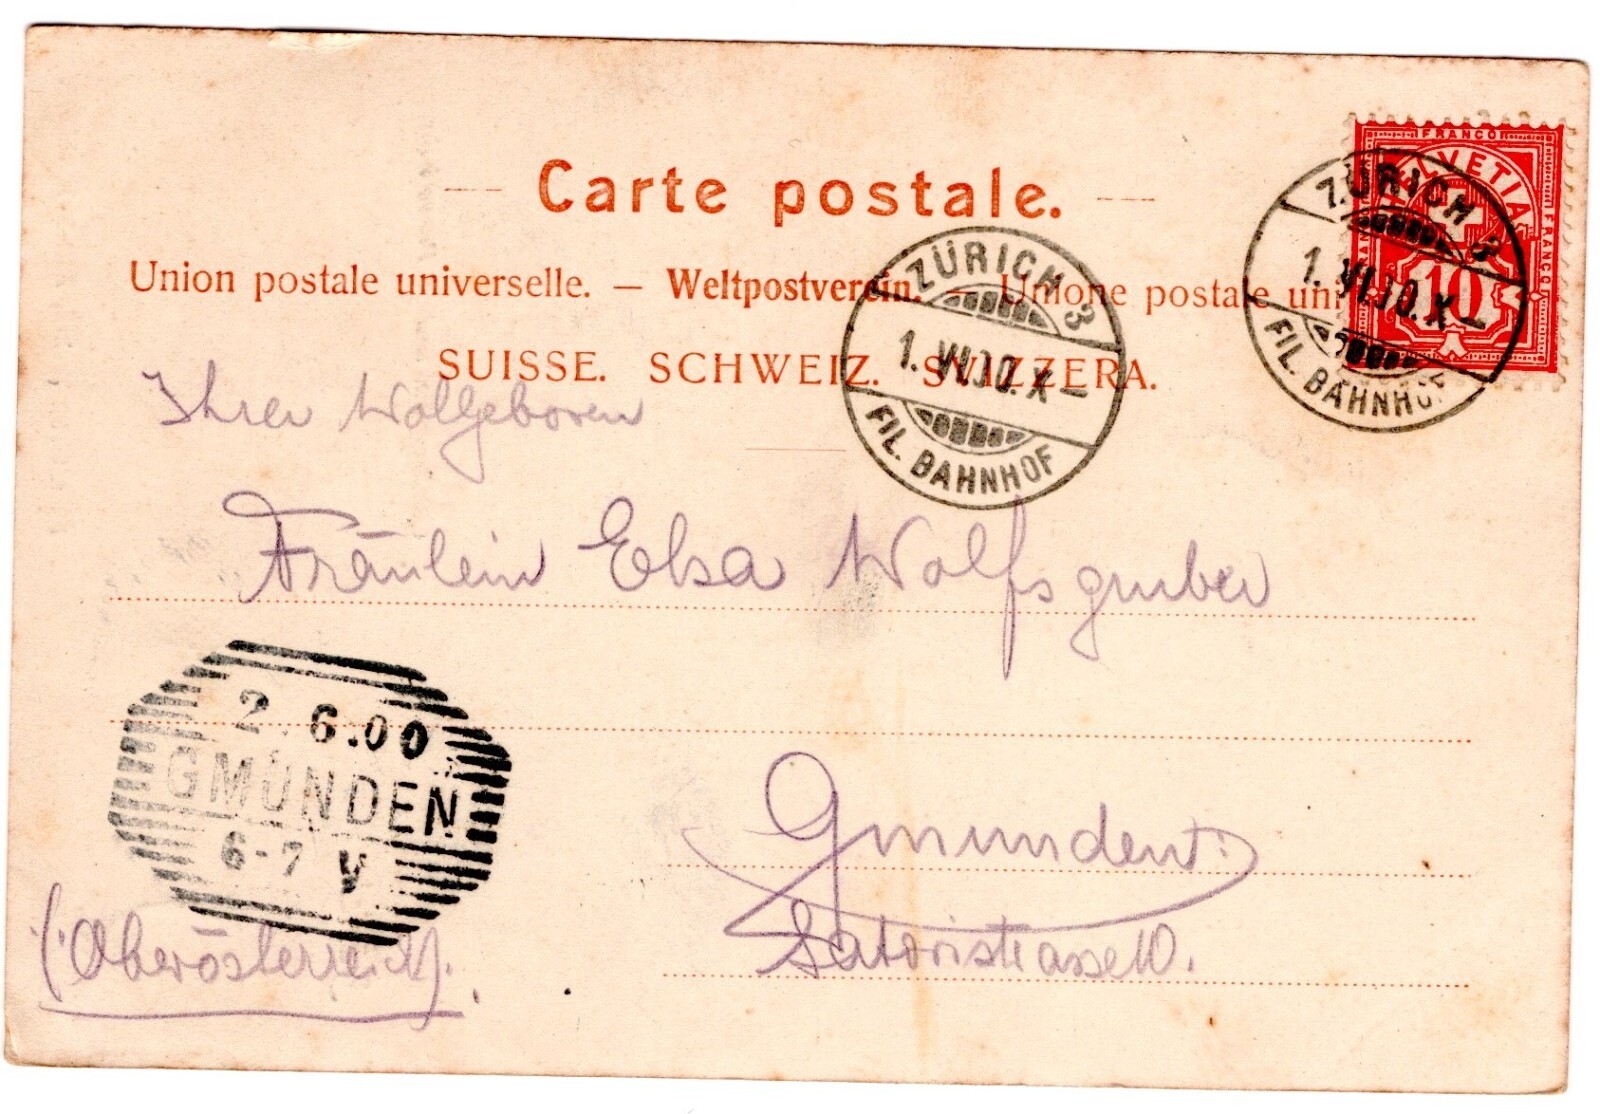 Carte postale.
Union postale universelle. — Weltpostverein. — Unione postale uni
SUISSE. SCHWEIZ. SVIZZERA.
FRANCO
HELVETIA
FRANCO
10
ZÜRICH 3
1.VI.00.X–
FIL. BAHNHOF
ZÜRICH 3
1.VI.00.X–
FIL. BAHNHOF
Ihrer Wolgeboren
Fräulein Elsa Wolfsgruber
2.6.00
GMUNDEN
6-7 V
Gmunden:
Satoristrasse 10.
(:Oberösterreich:).